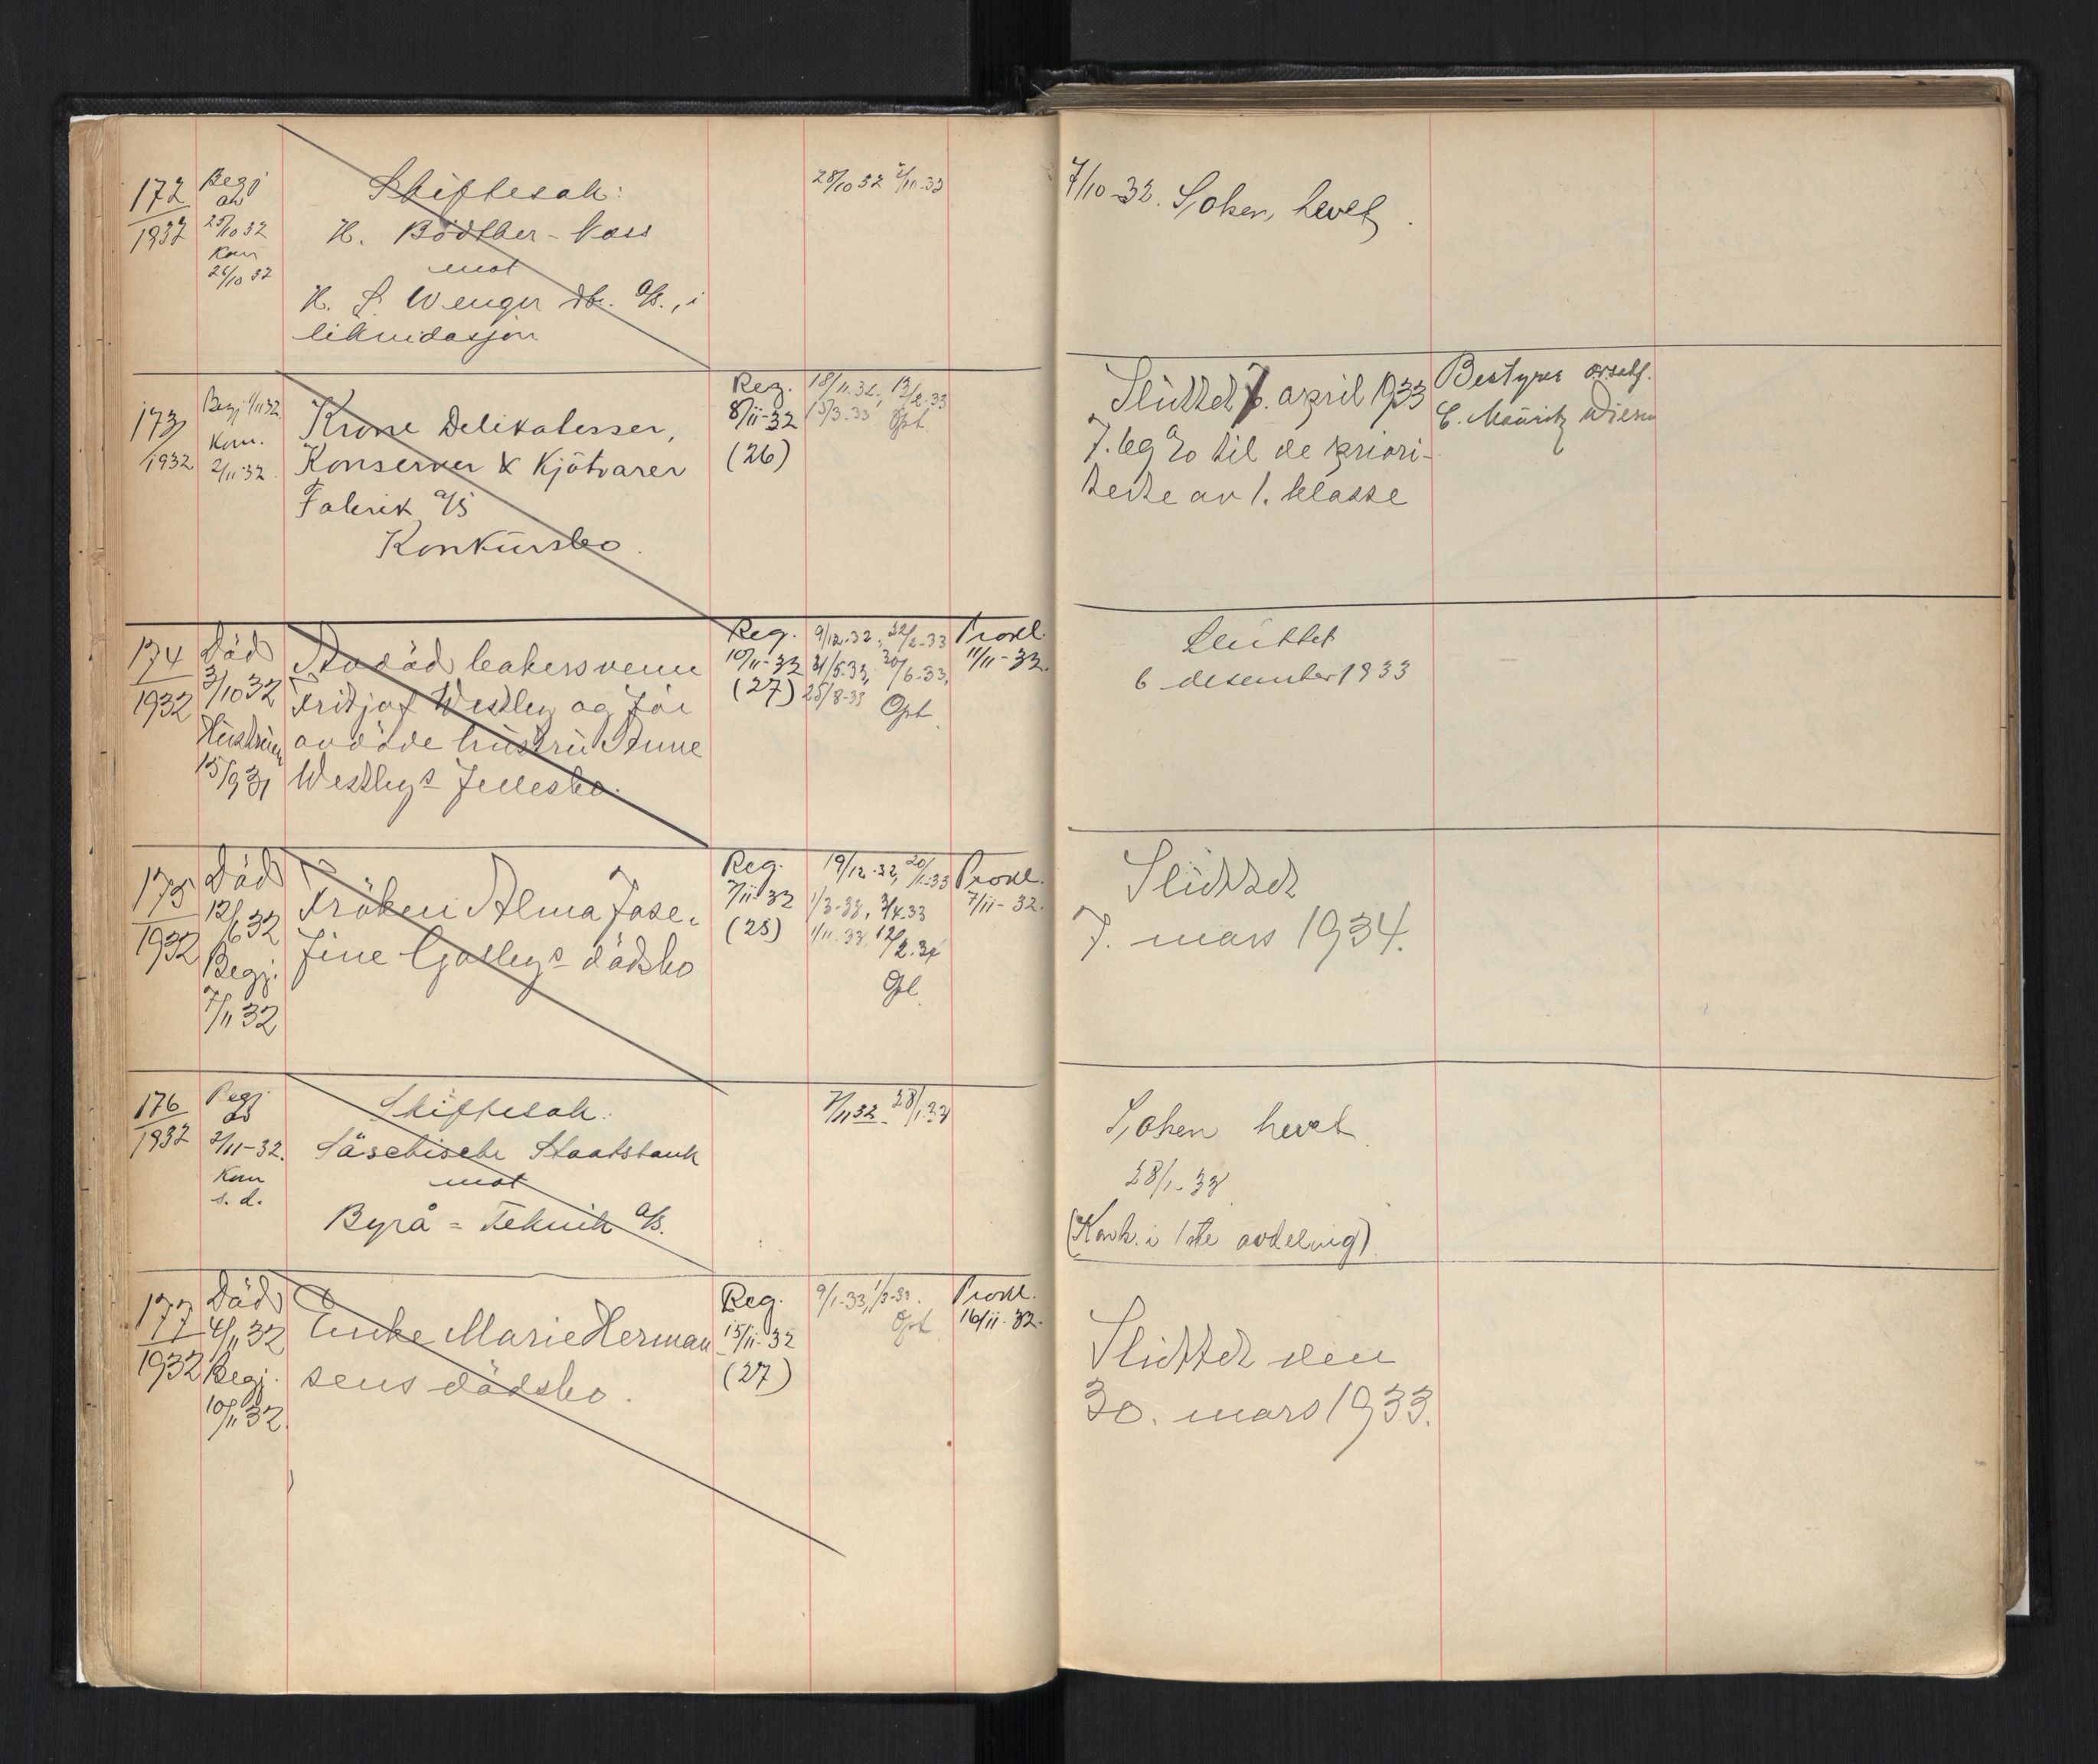 172
1932
Begj
av
25/10 32
Kom
26/10 32
Skiftesak:
H. Bödtker-Voss
mot
H. S. Wenger & Co. A/S., i
likvidasjon
28/10 32 7/11-32
7/10-32. Saken hevet.
173
1932
Begj 1/11 32
Kom.
2/11-32.
Krone Delikatesser,
Konserver & Kjötvarer
Fabrik A/S
Konkursbo.
Reg.
8/11-32
(26)
18/11.32, 13/2.33
Opt
Sluttet 7. april 1933
til de priori-
terte av 1. klasse
Bestyrer orsakf.
C. Mauritz
174
1932
Död
3/10 32
Hustruen
15/9 31
Avdöd bakersvenn
Fritjof Westley og för
avdöde hustru Anne
Westleys fellesbo.
Reg.
10/11-32
(27)
9/12-32, 22/2-33
31/5.33, 30/6-33,
25/8-33
Opt.
Prokl.
11/11-32.
Sluttet
6 desember 1933
175
1932
Död
12/6 32
Begj.
7/11 32
Fröken Alma Jose-
fine dödsbo
Reg.
7/11-32
(25)
19/12-32, 20/1-33
1/3-33, 3/4.33
1/11-33, 12/2.34
Prokl.
7/11-32.
Sluttet
7. mars 1934.
176
1932
Begj.
av
2/11-32.
Kom
s. d.
Skiftesak:
Säschische Staatsbank
mot
Byrå-Teknik A/S.
7/11 32. 28/1.33
Saken hevet
28/1-33
(Konk. i 1ste avdeling)
177
1932
Död
4/11 32
Begj.
10/11 32.
Enke Marie Herman-
sens dödsbo.
Reg.
15/11-32
(27)
9/1-33, 1/3-33.
Opt
Prokl.
16/11-32.
Sluttet den
30. mars 1933.